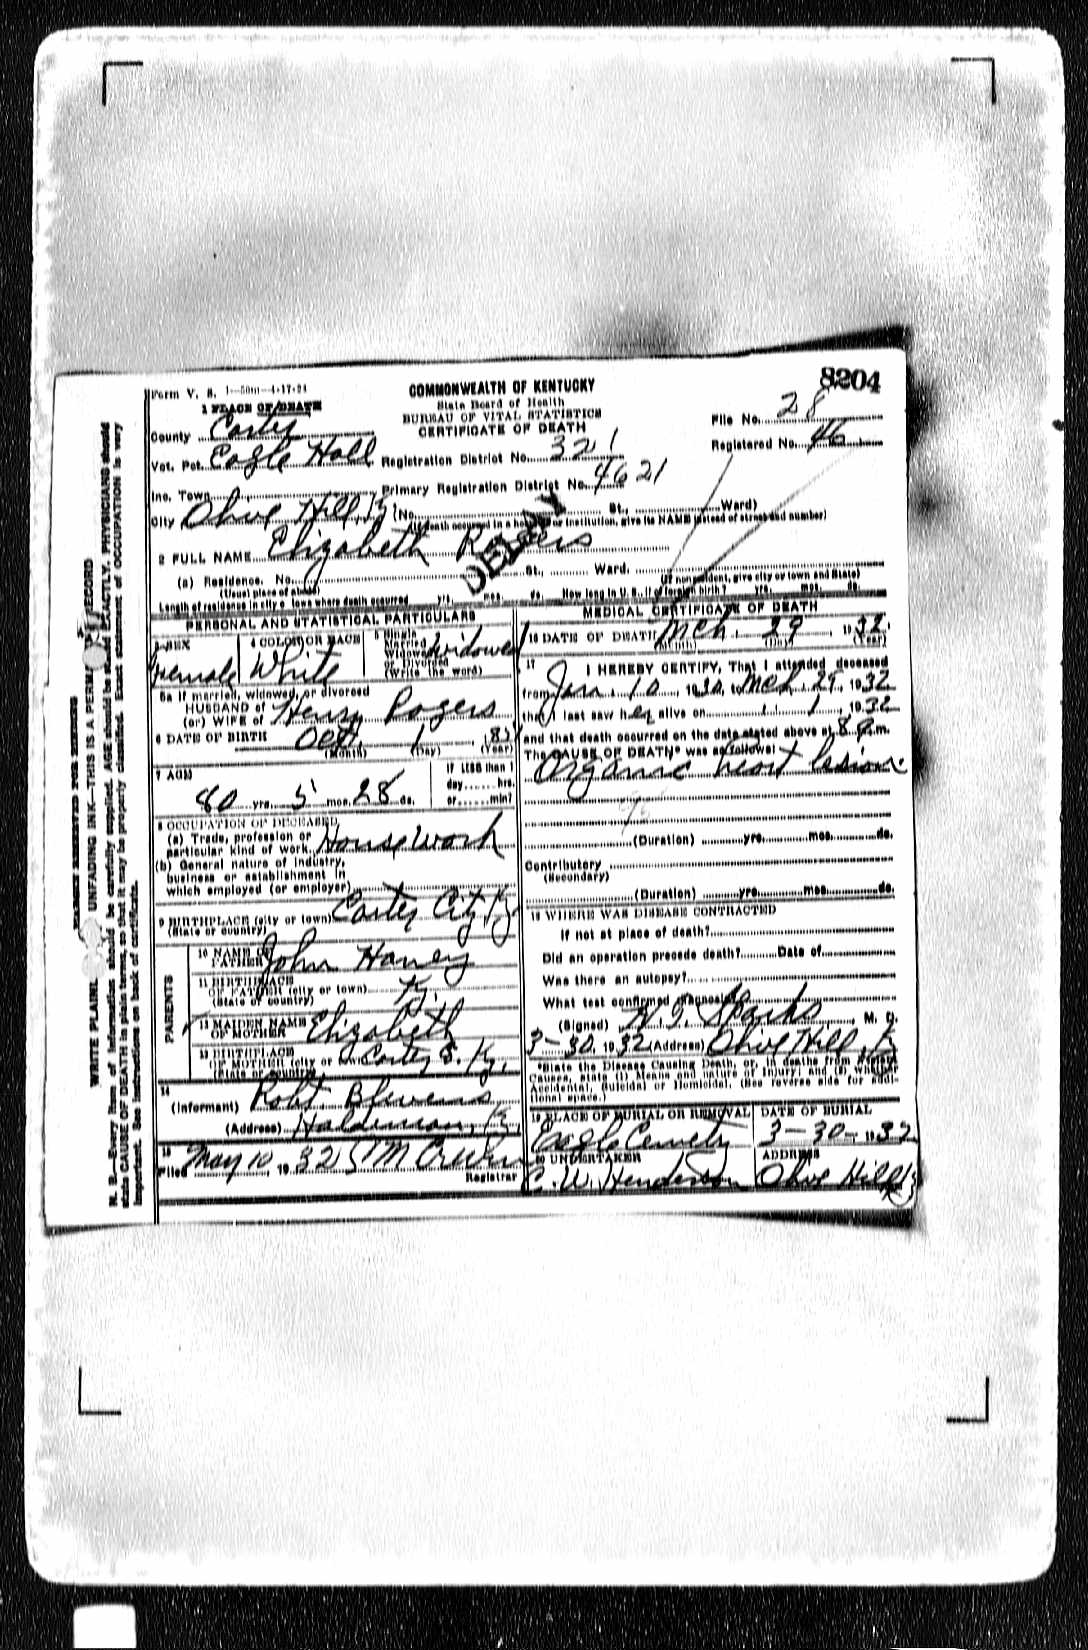 8204
Form V. S. 1—50m—4-17-24
COMMONWEALTH OF KENTUCKY
State Board of Health
BUREAU OF VITAL STATISTICS
CERTIFICATE OF DEATH
File No. 28
Registered No. 46
1 PLACE OF DEATH
County Carter
Vot. Pct. Eagle Hall Registration District No. 321
Inc. Town Primary Registration District No. 4621
City Olive Hill Ky (No. St., Ward)
(If death occurred in a hospital or institution, give its NAME instead of street and number)
DELAY
2 FULL NAME Elizabeth Rogers
(a) Residence. No. St., Ward.
(Usual place of abode) (If nonresident, give city or town and State)
Length of residence in city or town where death occurred yrs. mos. ds. How long in U. S., if of foreign birth? yrs. mos. ds.
PERSONAL AND STATISTICAL PARTICULARS
3 SEX
Female
4 COLOR OR RACE
White
5 Single
Married
Widowed
or Divorced
(Write the word)
Widowed
5a If married, widowed, or divorced
HUSBAND of
(or) WIFE of Henry Rogers
6 DATE OF BIRTH Oct. 1
(Month) (Day) (Year)
7 AGE
80 yrs. 5 mos. 28 ds.
If LESS than 1
day......hrs.
or......min?
8 OCCUPATION OF DECEASED
(a) Trade, profession or
particular kind of work Housework
(b) General nature of industry,
business or establishment in
which employed (or employer)
9 BIRTHPLACE (city or town) Carter City Ky
(State or country)
PARENTS
10 NAME OF
FATHER John Haney
11 BIRTHPLACE
OF FATHER (city or town) Ky.
(State or country)
12 MAIDEN NAME
OF MOTHER Elizabeth
13 BIRTHPLACE
OF MOTHER (city or Carter Ky.
(State or country)
14
(Informant) Robt Blevens
(Address) Haldeman, Ky.
15
Filed May 10, 1932
Registrar
MEDICAL CERTIFICATE OF DEATH
16 DATE OF DEATH Mch. 29, 1932
(Month) (Day) (Year)
17 I HEREBY CERTIFY, That I attended deceased
from Jan. 10, 1930, to Mch. 29, 1932
that I last saw her alive on 1932
and that death occurred on the date stated above at 8 a.m.
The CAUSE OF DEATH* was as follows:
Organic heart lesion.
(Duration) yrs. mos. ds.
Contributory
(Secondary)
(Duration) yrs. mos. ds.
18 WHERE WAS DISEASE CONTRACTED
If not at place of death?
Did an operation precede death? Date of
Was there an autopsy?
What test confirmed diagnosis?
(Signed) H. T. Sparks M. D.
3-30, 1932 (Address) Olive Hill, K
*State the Disease Causing Death, or, in deaths from Violent
Causes, state (1) Means and Nature of Injury; and (2) whether
Accidental, Suicidal or Homicidal. (See reverse side for addi-
tional space.)
19 PLACE OF BURIAL OR REMOVAL
Eagle Cemetry
DATE OF BURIAL
3-30- 1932
20 UNDERTAKER
C. W. Henderson
ADDRESS
Olive Hill Ky
MARGIN RESERVED FOR BINDING
WRITE PLAINLY UNFADING INK—THIS IS A PERMANENT RECORD
N. B.—Every item of information should be carefully supplied. AGE should be stated EXACTLY. PHYSICIANS should
state CAUSE OF DEATH in plain terms, so that it may be properly classified. Exact statement of OCCUPATION is very
important. See instructions on back of certificate.